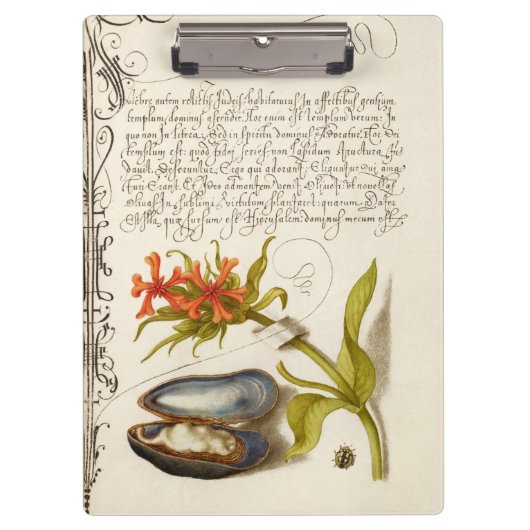 Achos autem relictis Judeis habitaturus In affectibus gentium
templum dominus ascendit. Hoc enim est templum verum: In
quo non In litera: Sed in Spiritu dominus Adoratur. Hoc Dei
templum est: quod fidei series non lapidum structura Fun
dauit. Deseruntur: Ergo qui adorant: Eliguntur qui ama
tur Erant. Et Ideo admontem venit Oliueti: ut nouellas
Oliuas In sublimi virtutum plantaret: quarum
Est illa, quæ sursum est Hierusalem: dominus mecum est